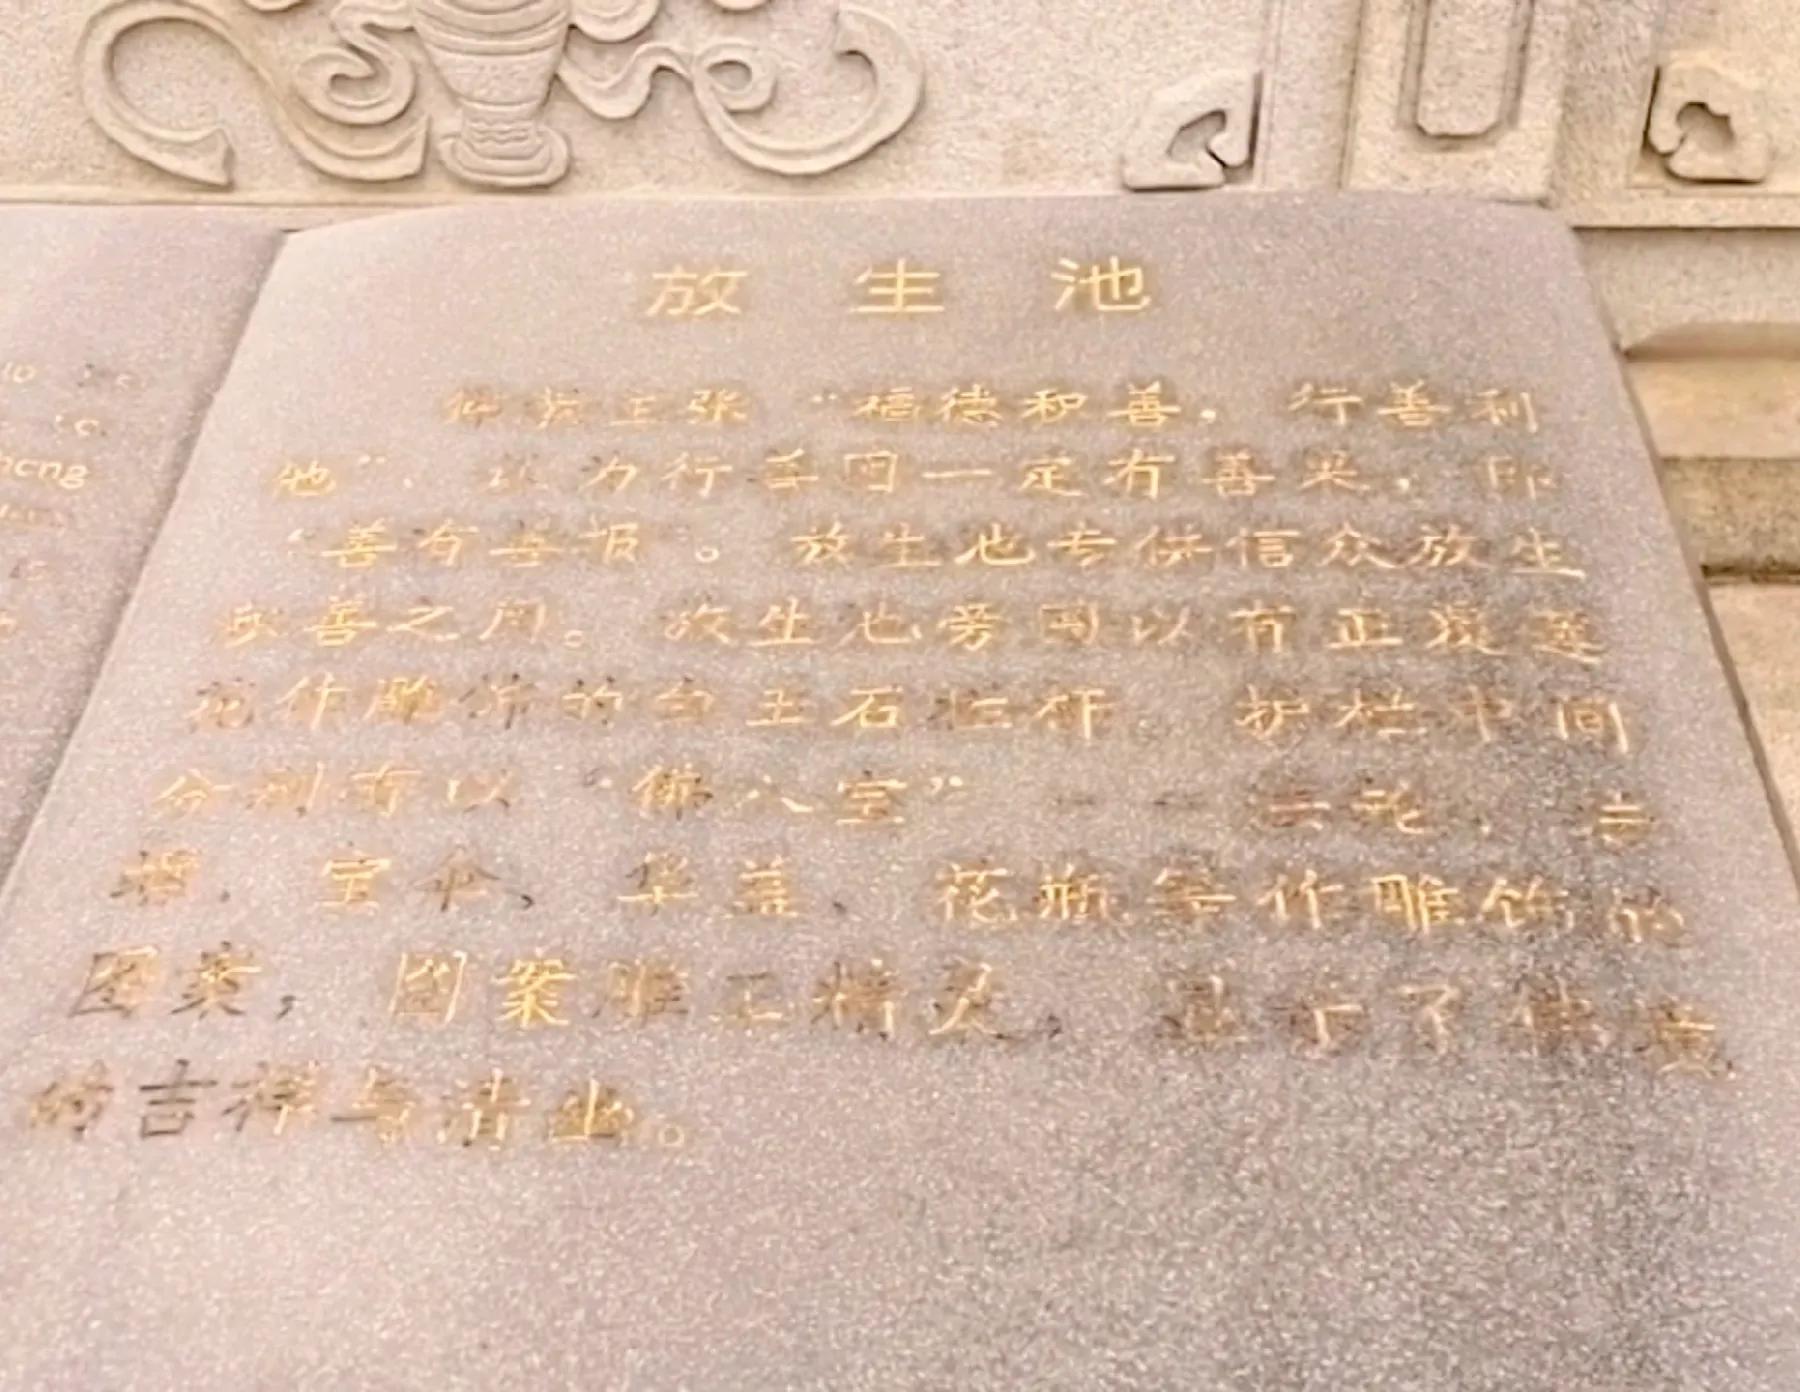 放生池
佛教主张“福德和善，行善利
他”，认为行善因一定有善果，即
“善有善报”。放生池专供信众放生
积善之用。放生池旁围以有正覆莲
花作雕饰的白玉石栏杆，护栏中间
分别有以“佛八宝”——法轮、吉
、宝伞、华盖、花瓶等作雕饰的
图案，图案雕工精灵，显示了佛教
的吉祥与清幽。
cheng